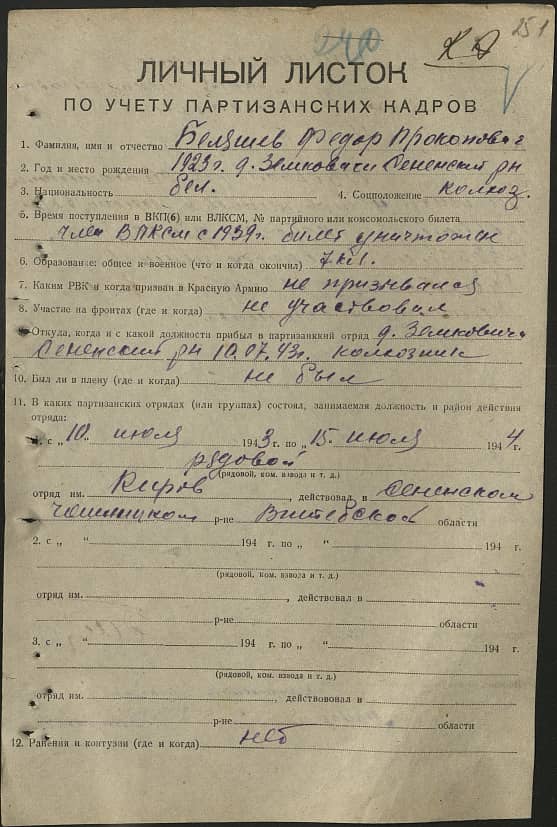 251
ЛИЧНЫЙ ЛИСТОК
ПО УЧЕТУ ПАРТИЗАНСКИХ КАДРОВ
1. Фамилия, имя и отчество Федор
2. Год и место рождения 1923 г. д. Земковичи Сененский рн
3. Национальность бел. 4. Соцположение колхоз.
5. Время поступления в ВКП(б) или ВЛКСМ, № партийного или комсомольского билета
член ВЛКСМ с 1939 г. билет уничтожен
6. Образование: общее и военное (что и когда окончил) 7 кл.
7. Каким РВК и когда призван в Красную Армию не призывался
8. Участие на фронтах (где и когда) не участвовал
9. Откуда, когда и с какой должности прибыл в партизанкий отряд д. Земковичи
Сененский рн 10.07.43г. колхозник
10. Был ли в плену (где и когда) не был
11. В каких партизанских отрядах (или группах) состоял, занимаемая должность и район действия
отряда:
1. с „10“ июля 1943 г. по „15.“ июля 1944 г.
рядовой
(рядовой, ком. взвода и т. д.)
отряд им. Киров, действовал в Сененском
р-не Витебской области
2. с „ “ 194 г. по „ “ 194 г.
(рядовой, ком. взвода и т. д.)
отряд им. , действовал в
р-не области
3. с „ “ 194 г. по „ “ 194 г.
(рядовой, ком. взвода и т. д.)
отряд им. , действовал в
р-не области
12. Ранения и контузии (где и когда) нет